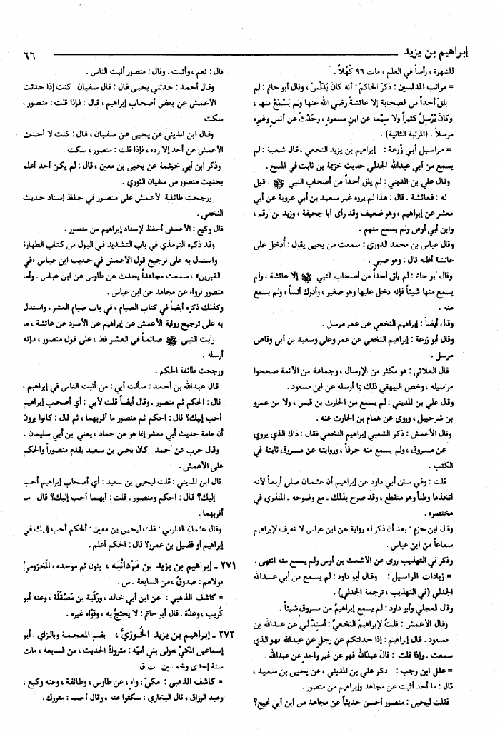 إبراهيم بن يزيد
٦٦
للشهرة ، رأساً في العلم ، مات ٩٦ كَهْلاً .
* مراتب المدلسين : ذكر الحاكم : أنه كان يُدَلِّسُ ، وقال أبو حاتم : لم
يلق أحداً من الصحابة إلا عائشة رضي الله عنها ولم يَسْمَعْ منها ،
وكان يُرْسِلُ كثيراً ولا سيما عن ابن مسعود ، وحَدَّثَ عن أنس وغيره
مرسلاً . (المرتبة الثانية) .
* مراسيل أبي زُرعة : إبراهيم بن يزيد النخعي . قال شعبة : لم
يسمع من أبي عبدالله الجدلي حديث خزيمة بن ثابت في المسح .
وقال علي بن المديني : لم يلق أحداً من أصحاب النبي ﷺ قيل
له : فعائشة . قال : هذا لم يروه غير سعيد بن أبي عروبة عن أبي
معشر عن إبراهيم ، وهو ضعيف وقد رأى أبا جحيفة ، وزيد بن أرقم ،
وابن أبي أوفى ولم يسمع منهم .
وقال عباس بن محمد الدوري : سمعت من يحيى يقول : أُدخل على
عائشة أظنه قال : وهو صبي .
وقال أبو حاتم : لم يلق أحداً من أصحاب النبي ﷺ إلا عائشة ، ولم
يسمع منها شيئاً فإنه دخل عليها وهو صغير ، وأدرك أنساً ، ولم يسمع
منه .
وقال أيضاً : إبراهيم النخعي عن عمر مرسل .
وقال أبو زرعة : إبراهيم النخعي عن عمر وعلي وسعد بن أبي وقاص
مرسل .
قال العلائي : هو مكثر من الإرسال ، وجماعة من الأئمة صححوا
مراسيله ، وخص البيهقي ذلك بما أرسله عن ابن مسعود .
وقال علي بن المديني : لم يسمع من الحارث بن قيس ، ولا من عمرو
بن شرحبيل ، وروى عن همام بن الحارث عنه .
وقال الأعمش : ذكر الشعبي إبراهيم النخعي فقال : ذاك الذي يروي
عن مسروق ، ولم يسمع منه حرفاً ، وروايته عن مسروق ثابتة في
الكتب .
قلت : وفي سنن أبي داود عن إبراهيم أن عثمان صلى أربعاً لأنه
اتخذها وطناً وهو منقطع ، وقد صرح بذلك ـ مع وضوحه ـ المنذري في
مختصره .
وقال ابن حزم : بعد أن ذكر له رواية عن ابن عباس لا نعرف لإبراهيم
سماعاً من ابن عباس .
وذكر في التهذيب روى عن الأشعث بن أوس ولم يسمع منه انتهى .
* زيادات المراسيل : وقال أبو داود : لم يسمع من أبي عبدالله
الجدلي (في التهذيب ، ترجمة الجدلي) .
وقال العجلي وأبو داود : لم يسمع إبراهيم من مسروق شيئاً .
وقال الأعمش : قلت لإبراهيم النخعي : أسند لي عن عبدالله بن
مسعود . قال إبراهيم : إذا حدثتكم عن رجل عن عبدالله فهو الذي
سمعت . وإذا قلت : قال عبدالله فهو عن غير واحد عن عبدالله .
* علل ابن رجب : ذكر علي بن المديني ، عن يحيى بن سعيد ،
قال : ما أحد أثبت عن مجاهد وإبراهيم من منصور .
فقلت ليحيى : منصور أحسن حديثاً عن مجاهد من ابن أبي نجيح ؟
قال : نعم ، وأثبت . وقال : منصور أثبت الناس .
وقال أحمد : حدثني يحيى قال : قال سفيان كنت إذا حدثت
الأعمش عن بعض أصحاب إبراهيم ، قال : فإذا قلت : منصور .
سكت
وقال ابن المديني عن يحيى عن سفيان ، قال : كنت لا أحدث
الأعمش عن أحد إلا رده ، فإذا قلت : منصور ، سكت
وذكر ابن أبي خيثمة عن يحيى بن معين ، قال : لم يكن أحد أعلم
بحديث منصور من سفيان الثوري .
ورجحت طائفة الأعمش على منصور في حفظ إسناد حديث
النخعي .
قال وكيع : الأعمش أحفظ لإسناد إبراهيم من منصور .
وقد ذكره الترمذي في باب التشديد في البول من كتاب الطهارة
واستدل به على ترجيح قول الأعمش في حديث ابن عباس ، في
القبرين ، سمعت مجاهداً يحدث عن طاوس عن ابن عباس . وأما
منصور فرواه عن مجاهد عن ابن عباس .
وكذلك ذكره أيضاً في كتاب الصيام ، في باب صيام العشر ، واستدل
به على ترجيح رواية الأعمش عن إبراهيم عن الأسود عن عائشة ، ما
رأيت النبي ﷺ صائماً في العشر قط ، على قول منصور ، فإنه
أرسله .
ورجحت طائفة الحكم .
قال عبدالله بن أحمد : سألت أبي : من أثبت الناس في إبراهيم .
قال : الحكم ثم منصور . وقال أيضاً قلت لأبي : أي أصحاب إبراهيم
أحب إليك ؟ قال : الحكم ثم منصور ما أقربهما ، ثم قال : كانوا يرون
أن عامة حديث أبي معشر إنما هو عن حماد ، يعني بن أبي سليمان .
وقال حرب عن أحمد كان يحيى بن سعيد يقدم منصوراً والحكم
على الأعمش .
قال ابن المديني : قلت ليحيى بن سعيد : أي أصحاب إبراهيم أحب
إليك ؟ قال : الحكم ومنصور . قلت : أيهما أحب إليك ؟ قال ما
أقربهما .
وقال عثمان الدارمي : قلت ليحيى بن معين : الحكم أحب إليك في
إبراهيم أو فضيل بن عمرو ؟ قال : الحكم أعلم .
٢٧١ ـ إبراهيم بن يزيد بن مَرْدَانْبَه ، بنون ثم موحدة ، المخزومي
مولاهم : صدوق ، من السابعة . س .
* كاشف الذهبي : عن ابن أبي خالد ، ورقبة بن مَصْقَلَة ، وعنه أبو
كُريب ، وعدَّة . قال أبو حاتم : لا يحتجُّ به ، وقوَّاه غيره .
٢٧٢ ـ إبراهيم بن يزيد الخُوزيُّ ، بضم المعجمة وبالزاي ، أبو
إسماعيل المكي مولى بني أمية : متروك الحديث ، من السابعة ، مات
سنة إحدى وخمسين . ت ق
* كاشف الذهبي : مكي ، واهٍ ، عن طاوس ، وطائفة ، وعنه وكيع ،
وعبد الرزاق ، قال البخاري : سكتوا عنه ، وقال أحمد : متروك .